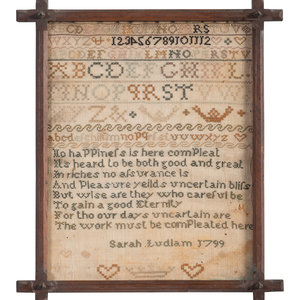 CD NO RS
123456789101112
CDEF LMNO RSTV
ABCDEFGHIL
NOPPRST
ZX
abcdefghilmnopqrstuvwxyz
No haPPineſs is here comPleat
Its heard to be both good and great
In riches no aſsurance is
And Pleasure yeilds uncertain bliſs
But wise are they who careful be
To gain a good Eternity
For tho our days uncertain are
The work must be comPleated here
Sarah Ludlam 1799